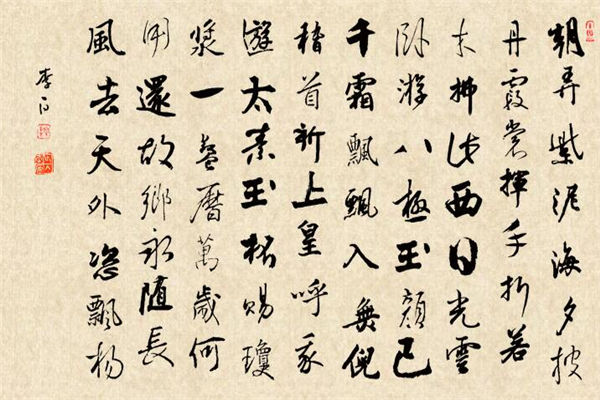 朝弄紫泥海夕披
丹霞裳揮手折若
木拂此西日光雲
卧游八極玉顏已
千霜飄飄入無倪
稽首祈上皇呼我
遊太素玉杯賜瓊
漿一餐曆萬歲何
用還故鄉永隨長
風去天外恣飄揚
李